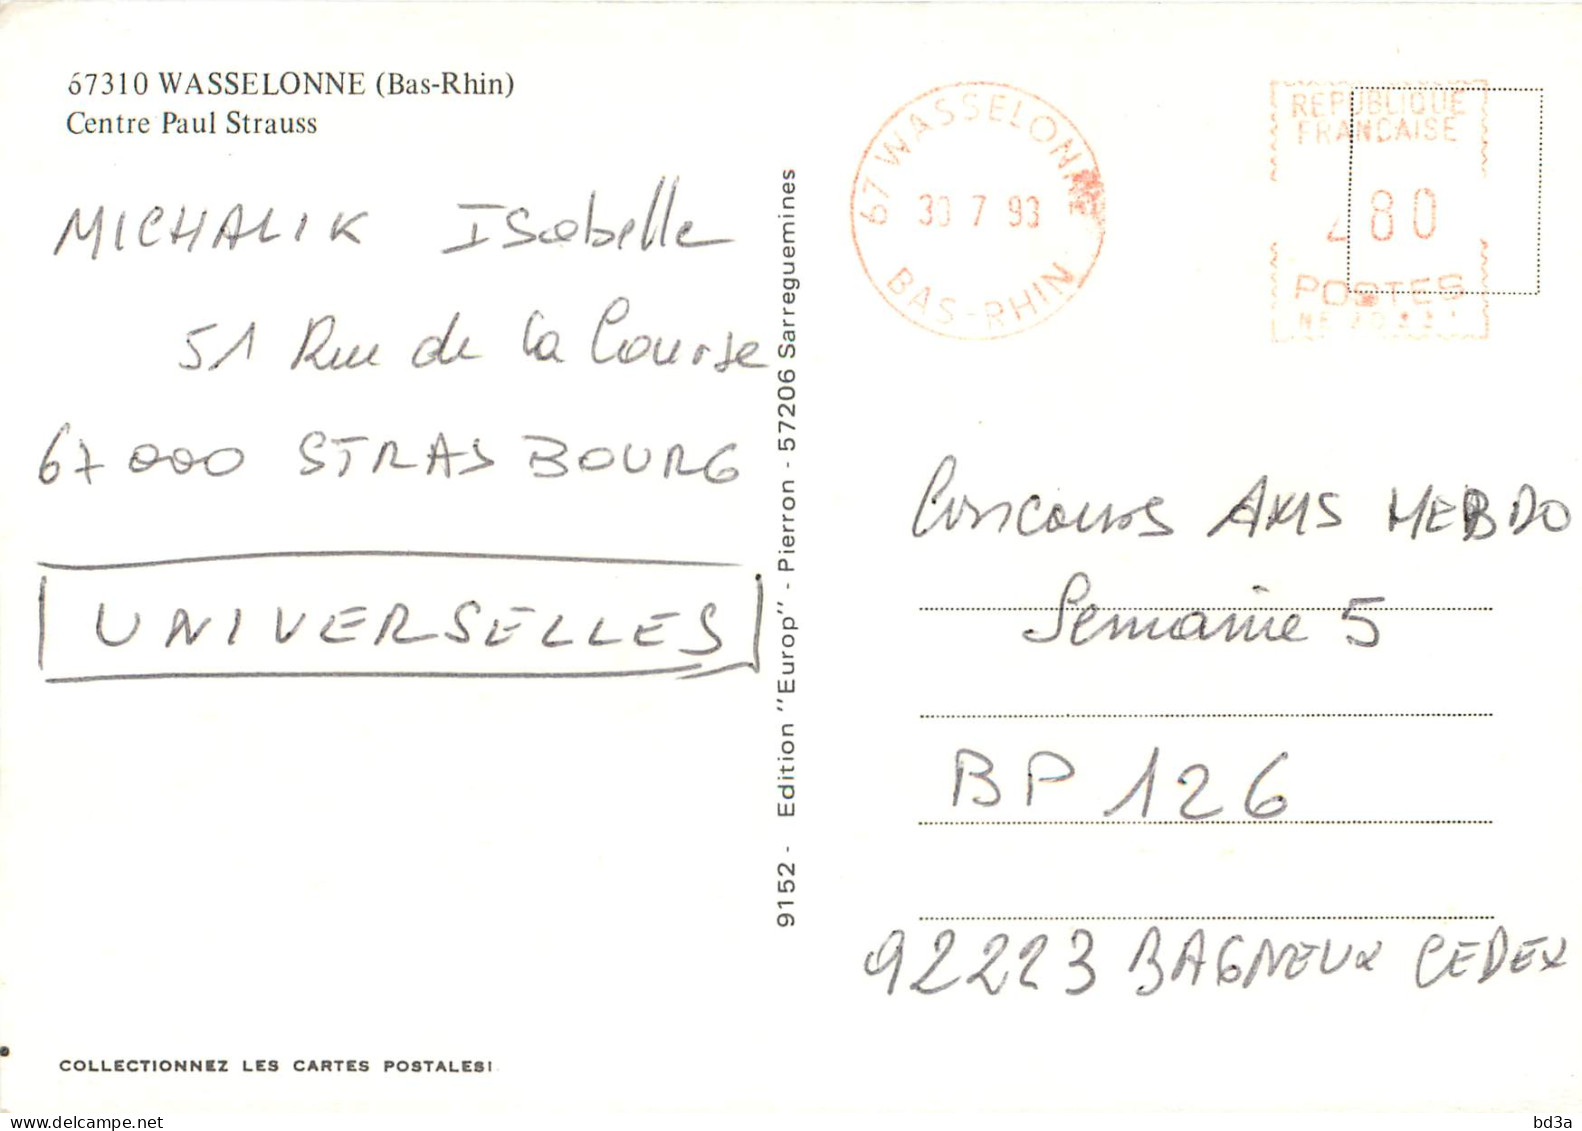 67310 WASSELONNE (Bas-Rhin)
Centre Paul Strauss
MICHALIK Isabelle
51 Rue de la Course
67000 STRASBOURG
UNIVERSELLES
COLLECTIONNEZ LES CARTES POSTALES!
9152 - Edition "Europ" - Pierron - 57206 Sarreguemines
67 WASSELONNE
30 7 93
BAS-RHIN
REPUBLIQUE
FRANCAISE
80
POSTES
Concours AMS HEBDO
Semaine 5
BP 126
92223 BAGNEUX CEDEX
delcampe.net
bd3a